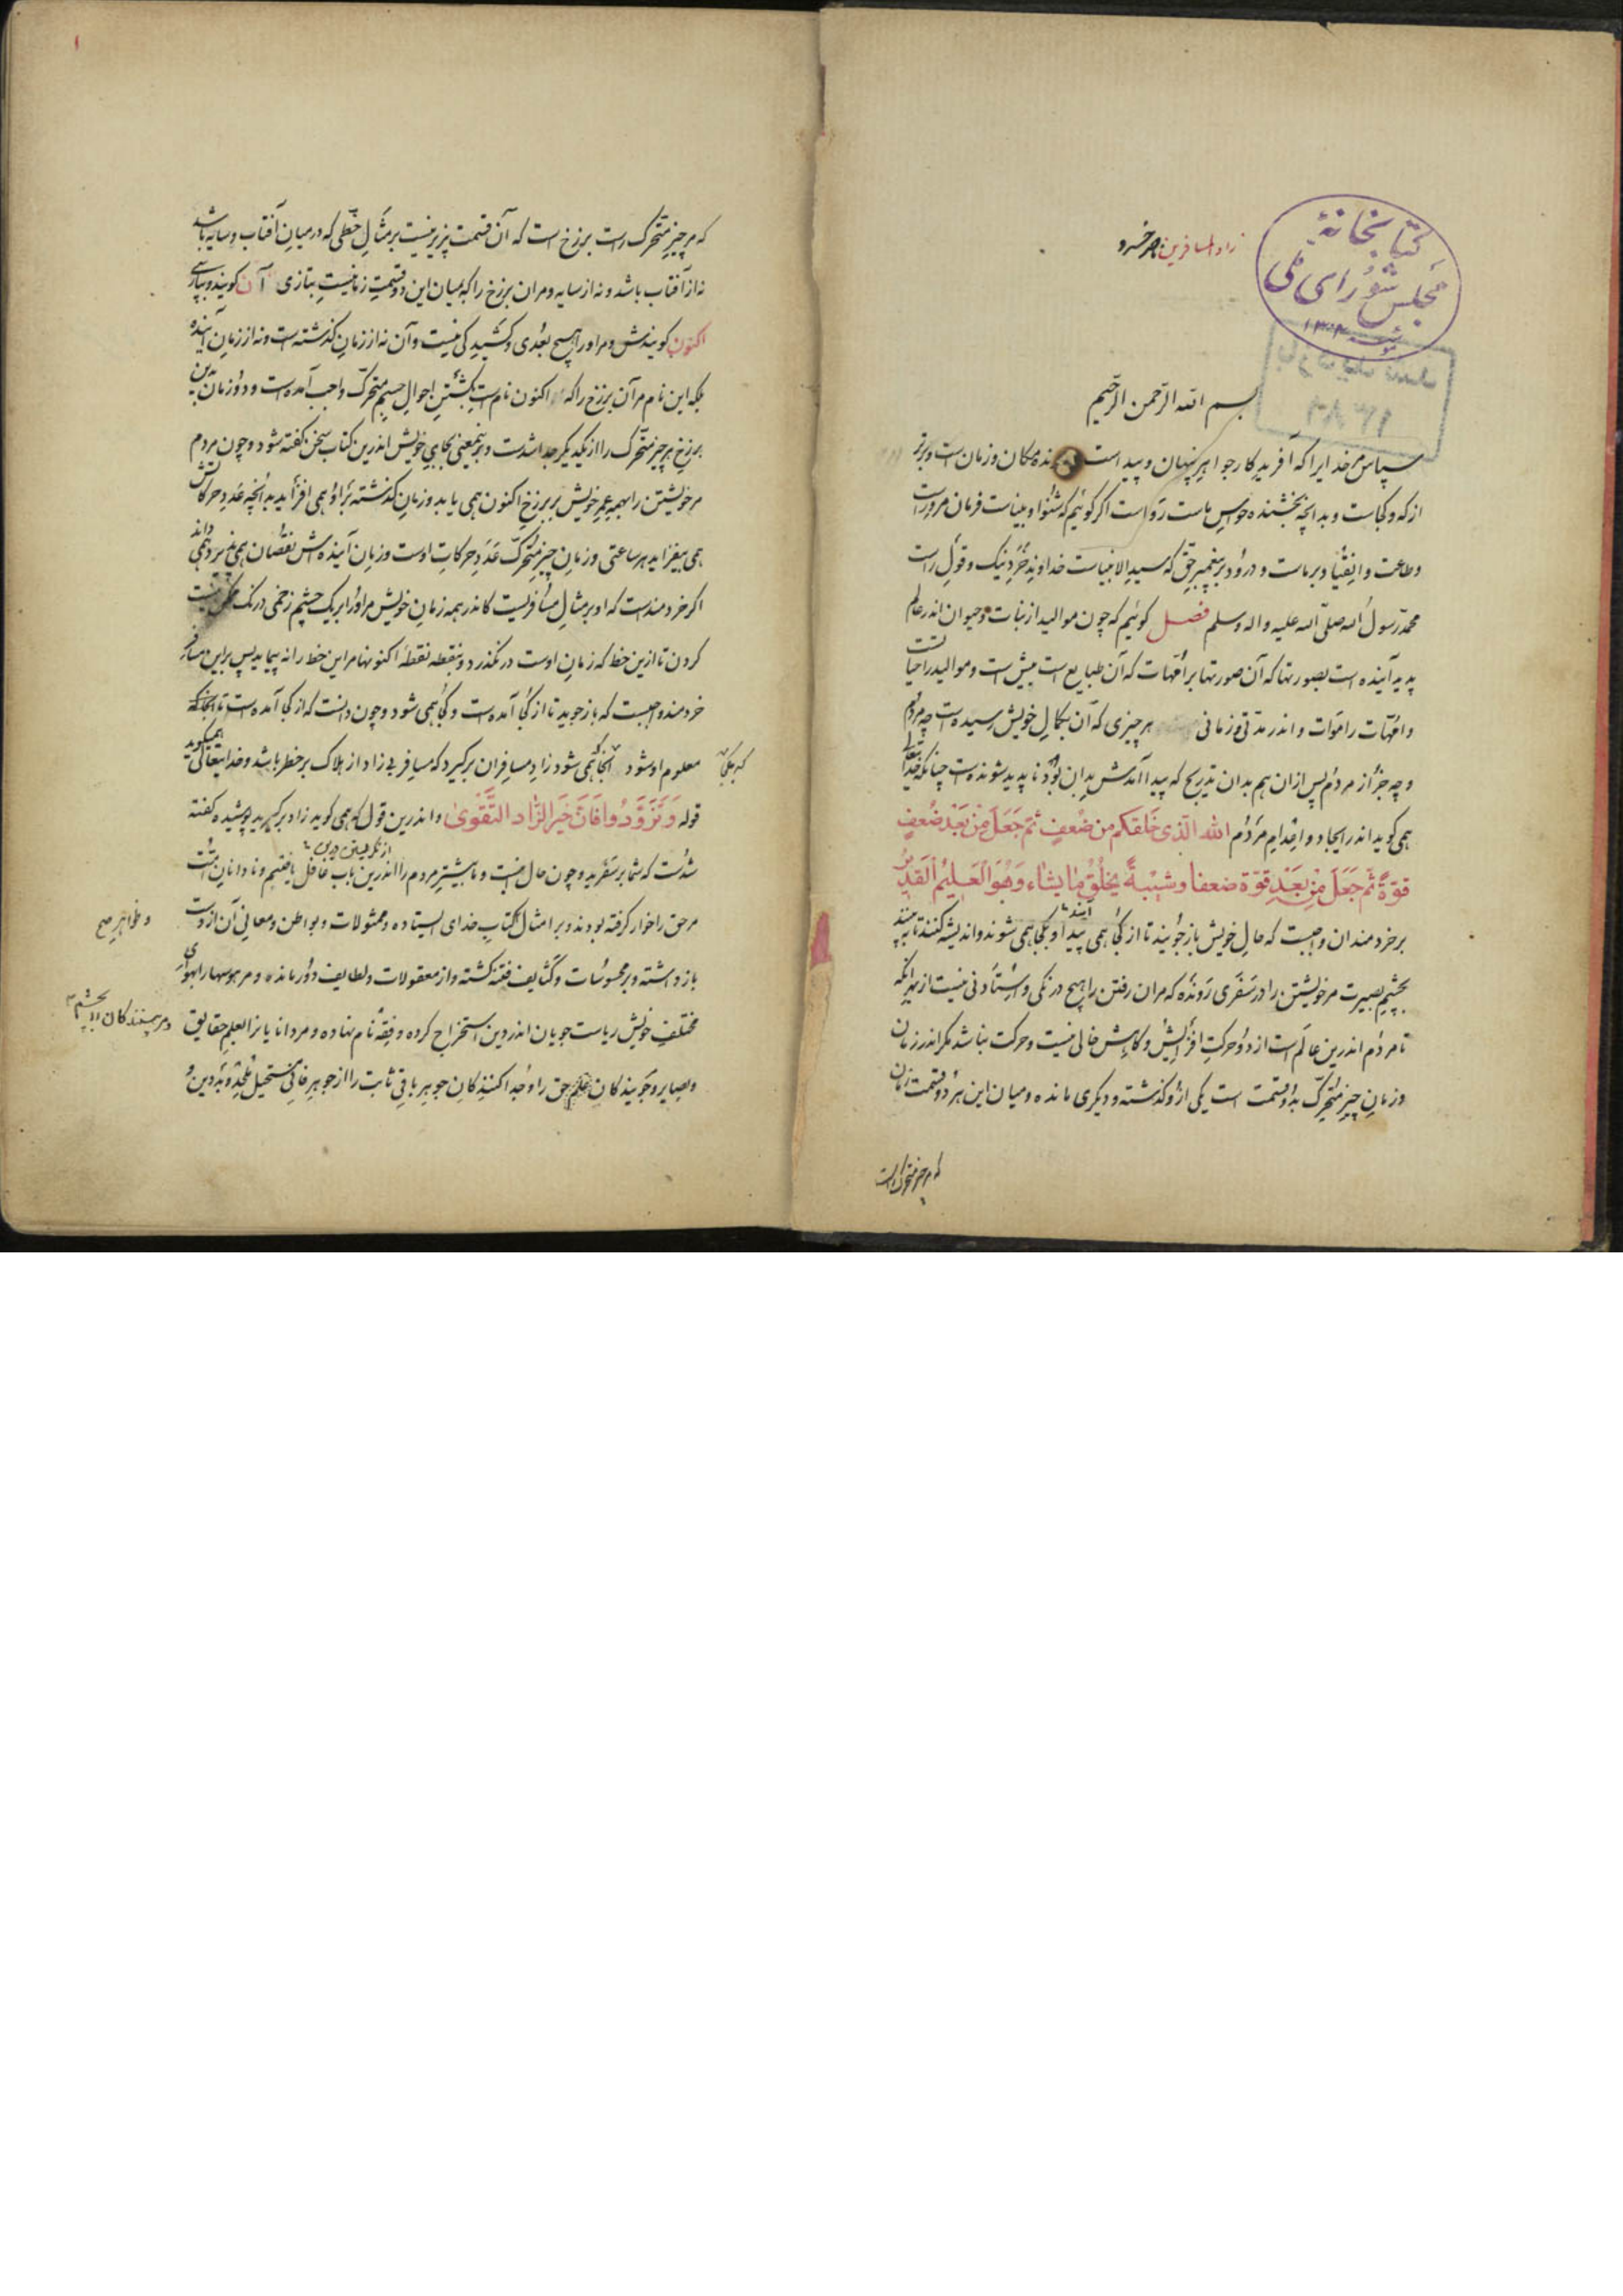 کتابخانهٔ
مجلس شورای ملی
زاد المسافرین ناصرخسرو
بسم الله الرحمن الرحیم
سپاس مر خدایرا که آفریدکار جواهر پنهان و پیداست و مکان و زمان است و برتر
از که و کجاست و بدانچه بخشنده حواس ماست رواست اگر گوئیم که شنوا و بیناست فرمان مرو راست
وطاعت و انقیاد بر ماست و درود بر پیغمبر حق که سید الانبیاست خداوند خرد نیک و قول راست
محمد رسول الله صلی الله علیه واله وسلم فصل کوئیم که چون موالید از نبات و حیوان اندر عالم
پدید آینده است بصورتها که آن صورتها بر امهات که آن طبایع است نیست و موالید را حیات است
و امهات را موات و اندر مدتی و زمانی هر چیزی که آن بکمال خویش رسیده است چه مردم
و چه جز از مردم پس ازان هم بدان تدریج که پیدا آمدنش بدان بود ناپدید شونده است چنانکه خدایتعالی
همی کوید اندر ایجاد و اعدام مردم الله الذی خلقکم من ضعف ثم جعل من بعد ضعف
قوّة ثم جعل من بعد قوّة ضعفا وشیبة یخلق ما یشاء وهو العلیم القدیر
بر خردمندان واجبست که حال خویش باز جویند تا از کجا همی آیند و بکجا همی شوند و اندیشه کنند تا به بینند
بچشم بصیرت مر خویشتن را در سفری رونده که مران رفتن را هیچ درنکی و استادنی نیست از بهر انکه
تا مردم اندرین عالم است از دو حرکت افزایش و کاهش خالی نیست و حرکت نباشد مکر اندر زمان
و زمان چیز متحرک بدو قسمت است یکی ازو کذشته و دیکری مانده و میان این هر دو قسمت زمان
که هر چیز متحرک راست
که هر چیز متحرک راست برزخ است که آن قسمت پزیر نیست بر مثال خطی که در میان آفتاب و سایه باشد
نه از آفتاب باشد و نه از سایه و مران برزخ را که میان این دو قسمت زمانیست بتازی آن کویند و بپارسی
اکنون کویندش و مر او را هیچ بعدی و کشیدکی نیست و آن نه از زمان کذشته است و نه از زمان آینده
بلکه این نام مر آن برزخ را که اکنون نام است بکشتن احوال جسم متحرک واجب آمده است و دو زمان بدین
برزخ هر چیز متحرک را از یکدیکر جدا شدست و برینمعنی بجای خویش اندرین کتاب سخن کفته شود و چون مردم
مر خویشتن را بهمه عمر خویش بر برزخ اکنون همی یابد و زمان کذشته برو همی افزاید بدانچه عدد حرکاتش
همی بیفزاید هر ساعتی و زمان چیز متحرک عدد حرکات اوست و زمان آینده اش نقصان همی پزیرد همی داند
اکر خردمندست که او بر مثال مسافریست کاندر همه زمان خویش مراورا بر یک چشم زخمی درنک ممکن نیست
کردن تا ازین خط که زمان اوست در نکذرد و بنقطه نقطه اکنونها مر این خط را نه پیماید پس برین مسافر
خردمند واجبست که باز جوید تا از کجا آمده است و کجا همی شود و چون دانست که از کجا آمده است تا بجا که
معلوم او شود انجا که همی شود زاد مسافران برکیرد که مسافر بی زاد از هلاک بر خطر باشد و خدایتعالی همیکوید
قوله وتزوّدوا فانّ خیر الزّاد التّقوی و اندرین قول که همی کوید زاد برکیرید پوشیده کفته
شدست که شما بر سفرید و چون حال اینست و ما بیشتر مردم را اندرین باب غافل یافتیم و نادانان امت
مر حق را خوار کرفته بودند و بر امثال کتاب خدای ایستاده و ممثولات و بواطن و معانی آن از دست
باز داشته و بر محسوسات و کثایف فتنه کشته و از معقولات و لطایف دور مانده و مر هوسها را بهوای
مختلف خویش ریاست جویان اندر دین استخراج کرده و فقه نام نهاده و مر دانایانرا بعلم حقایق
و بصایر و جویندکان علم حق را و جدا کنندکان جوهر باقی ثابت را از جوهر فانی مستحیل ملحد و بددین و
از نکریستن درین
که بکجا
و ظواهر
و مر بینندکان را بچشم